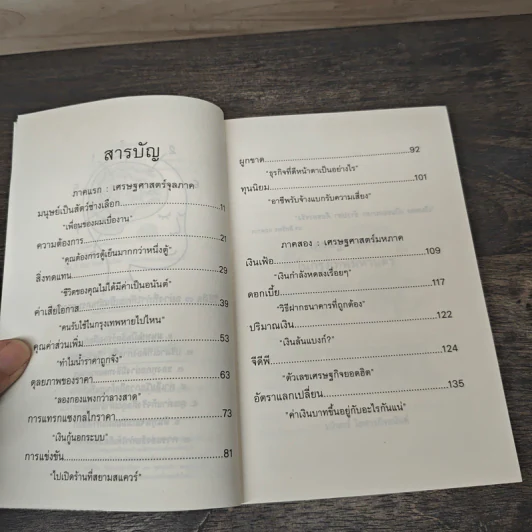 สารบัญ
ภาคแรก : เศรษฐศาสตร์จุลภาค
มนุษย์เป็นสัตว์ช่างเลือก 11
"เพื่อนของผมเบื่องาน"
ความต้องการ 21
"คุณต้องการตู้เย็นมากกว่าหนึ่งตู้"
สิ่งทดแทน 29
"ชีวิตของคุณไม่ได้มีค่าเป็นอนันต์"
ค่าเสียโอกาส 39
"คนรับใช้ในกรุงเทพหายไปไหน"
คุณค่าส่วนเพิ่ม 53
"ทำไมน้ำราคาถูกจัง"
ดุลยภาพของราคา 63
"ลองกองแพงกว่าลางสาด"
การแทรกแซงกลไกราคา 73
"เงินกู้นอกระบบ"
การแข่งขัน 81
"ไปเปิดร้านที่สยามสแควร์"
ผูกขาด 92
"ธุรกิจที่ดีหน้าตาเป็นอย่างไร"
ทุนนิยม 101
"อาชีพรับจ้างแบกรับความเสี่ยง"
ภาคสอง : เศรษฐศาสตร์มหภาค
เงินเฟ้อ 109
"เงินกำลังหดลงเรื่อยๆ"
ดอกเบี้ย 117
"วิธีฝากธนาคารที่ถูกต้อง"
ปริมาณเงิน 122
"เงินล้นแบงก์?"
จีดีพี 124
"ตัวเลขเศรษฐกิจยอดฮิต"
อัตราแลกเปลี่ยน 135
"ค่าเงินบาทขึ้นอยู่กับอะไรกันแน่"